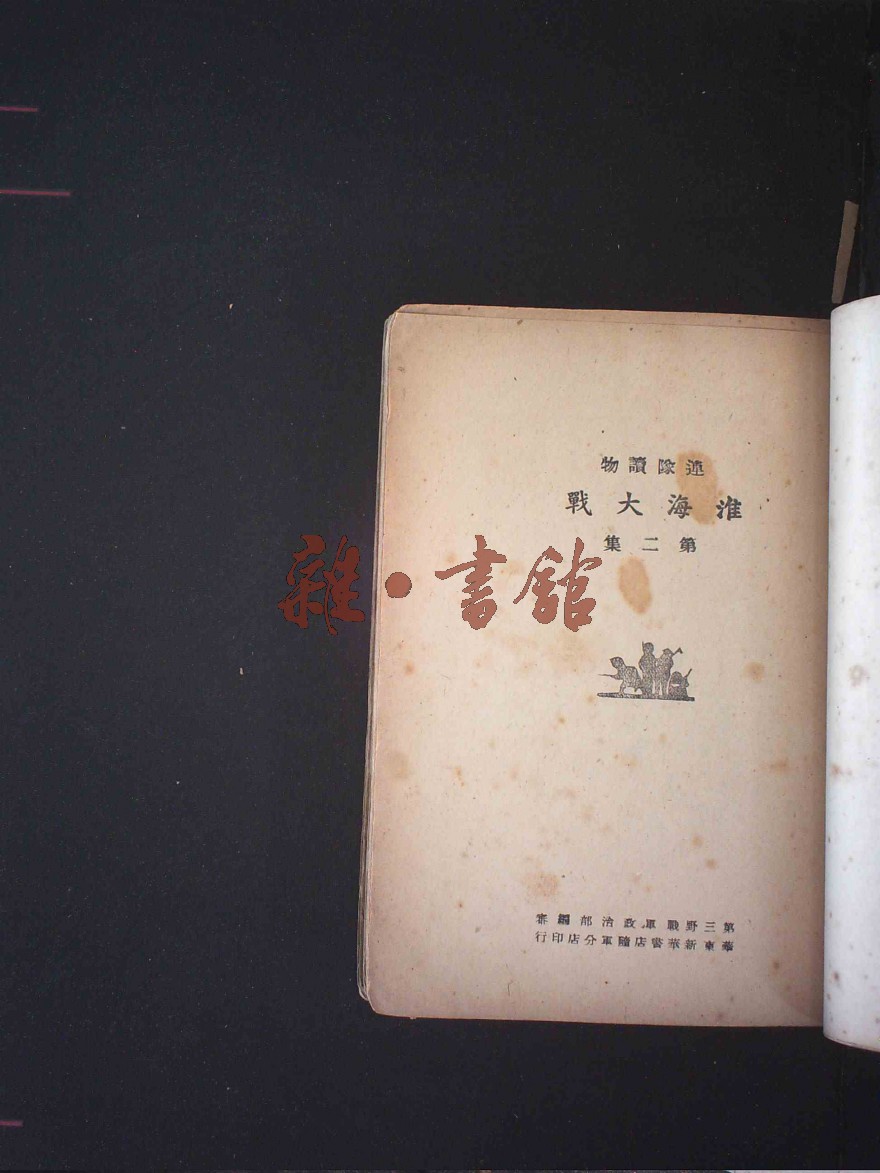 連隊讀物
淮海大戰
第二集
雜·書舘
第三野戰軍政治部編審
華東新華書店隨軍分店印行